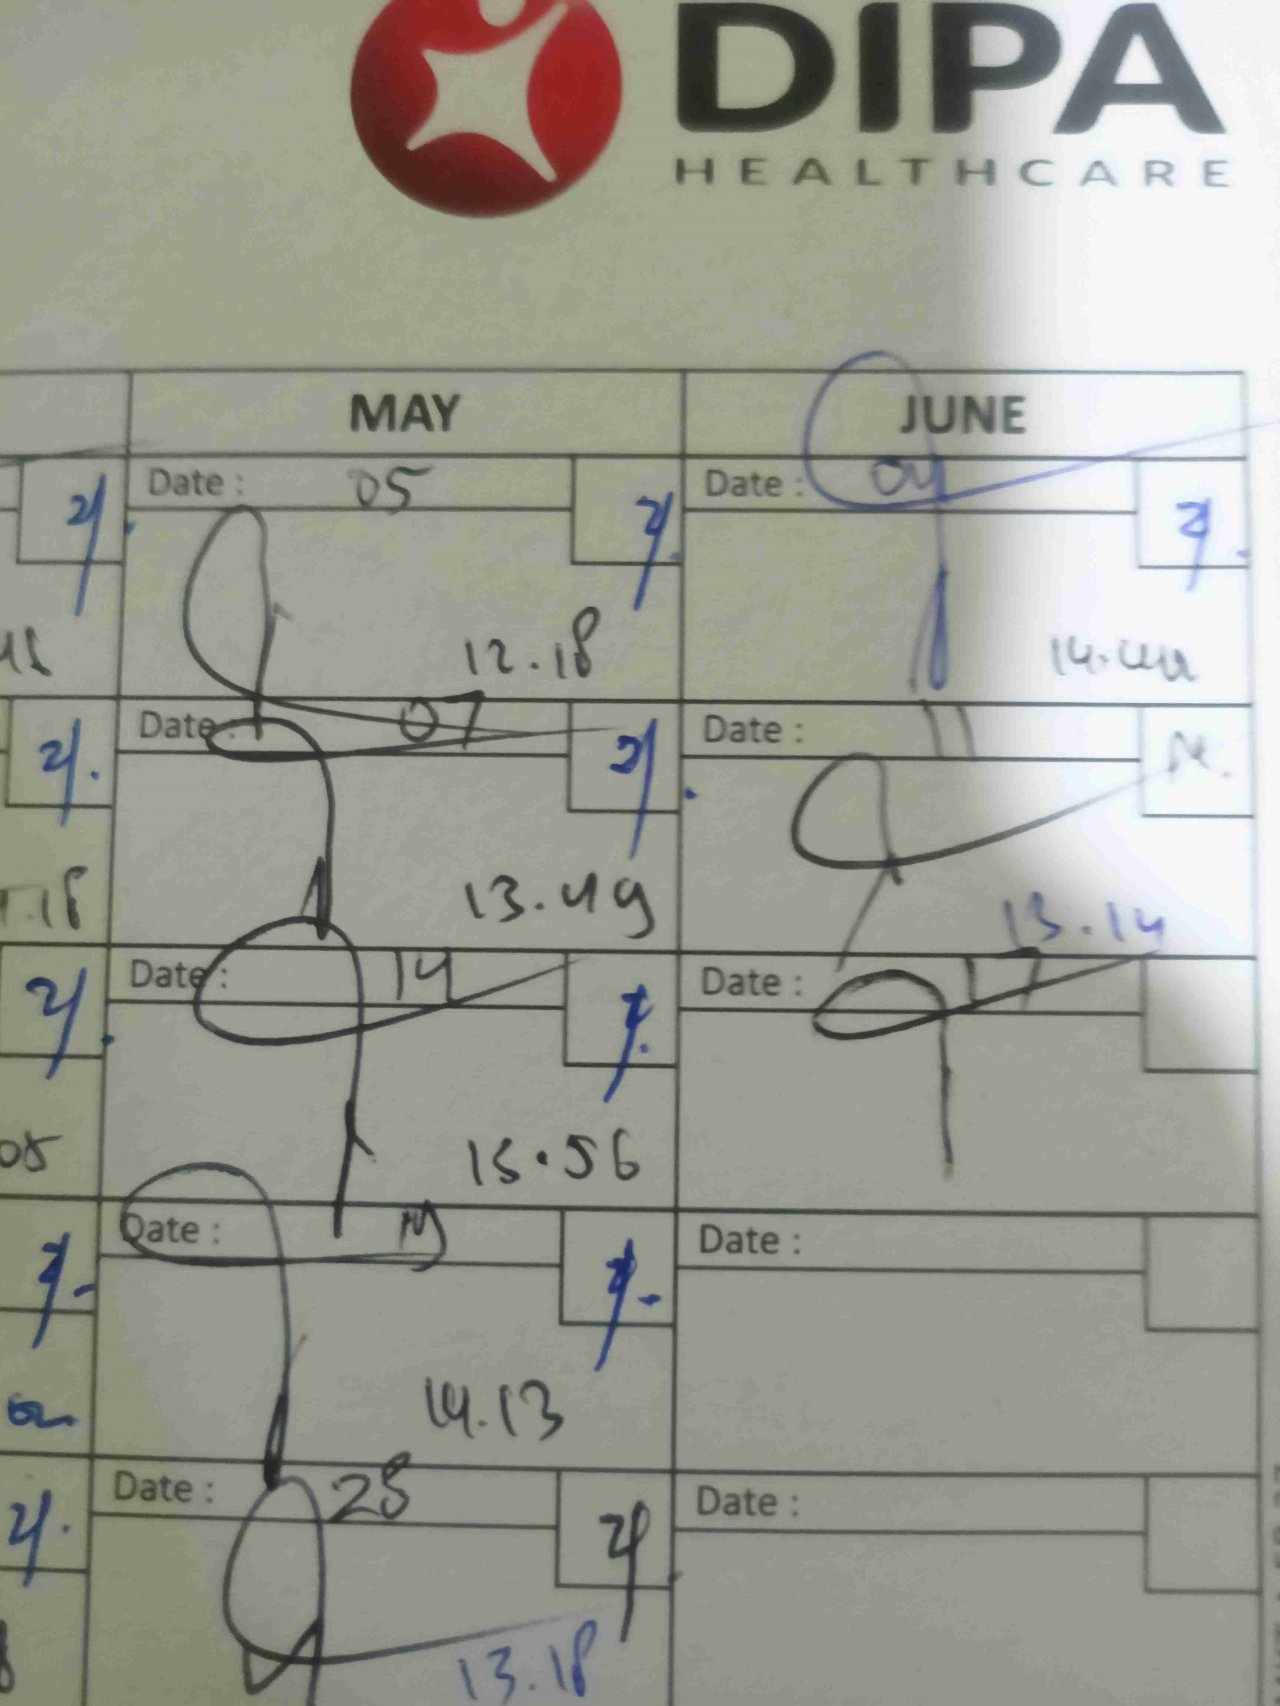 DIPA
HEALTHCARE
MAY JUNE
Date : 05 Date : 04
12.18 14.44
Date : 07 Date : 11
13.49 13.14
Date : 14 Date : 17
05 15.56
Date : Date :
14.13
Date : 28 Date :
13.18